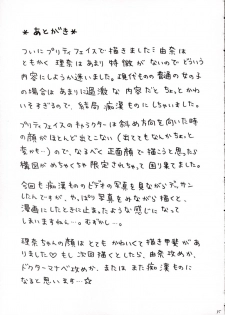 ＊あとがき＊
ついにプリティフェイスで描きました…由奈は
ともかく 理奈は あまり特徴がないので どういう
内容にしようか迷いました。現代ものの普通の女の子
の場合は あまりに過激な内容だと ちょっとかわい
そすぎるので、結局 痴漢ものにしちゃいました。
プリティフェイスのキャラクターは斜め方向を向いた時
の顔がほとんど出てこない（出てても なんかちょっと
変かも…）ので、なるべく正面顔で描こうと思ったら
構図がめちゃくちゃ限定されちゃって困り果てました。
今回も痴漢もののビデオの写真を見ながらデッサン
したんですが、やっぱり写真をみながら描くと、
漫画にしたときに止まったような感じになって
しまいますねん…。むずかし～。
理奈ちゃんの顔はとてもかわいくて描き甲斐があり
ました♡もし次回描くとしたら、由奈攻めか、
ドクターマナベ攻めか、またはまた痴漢ものに
なると思います…☆